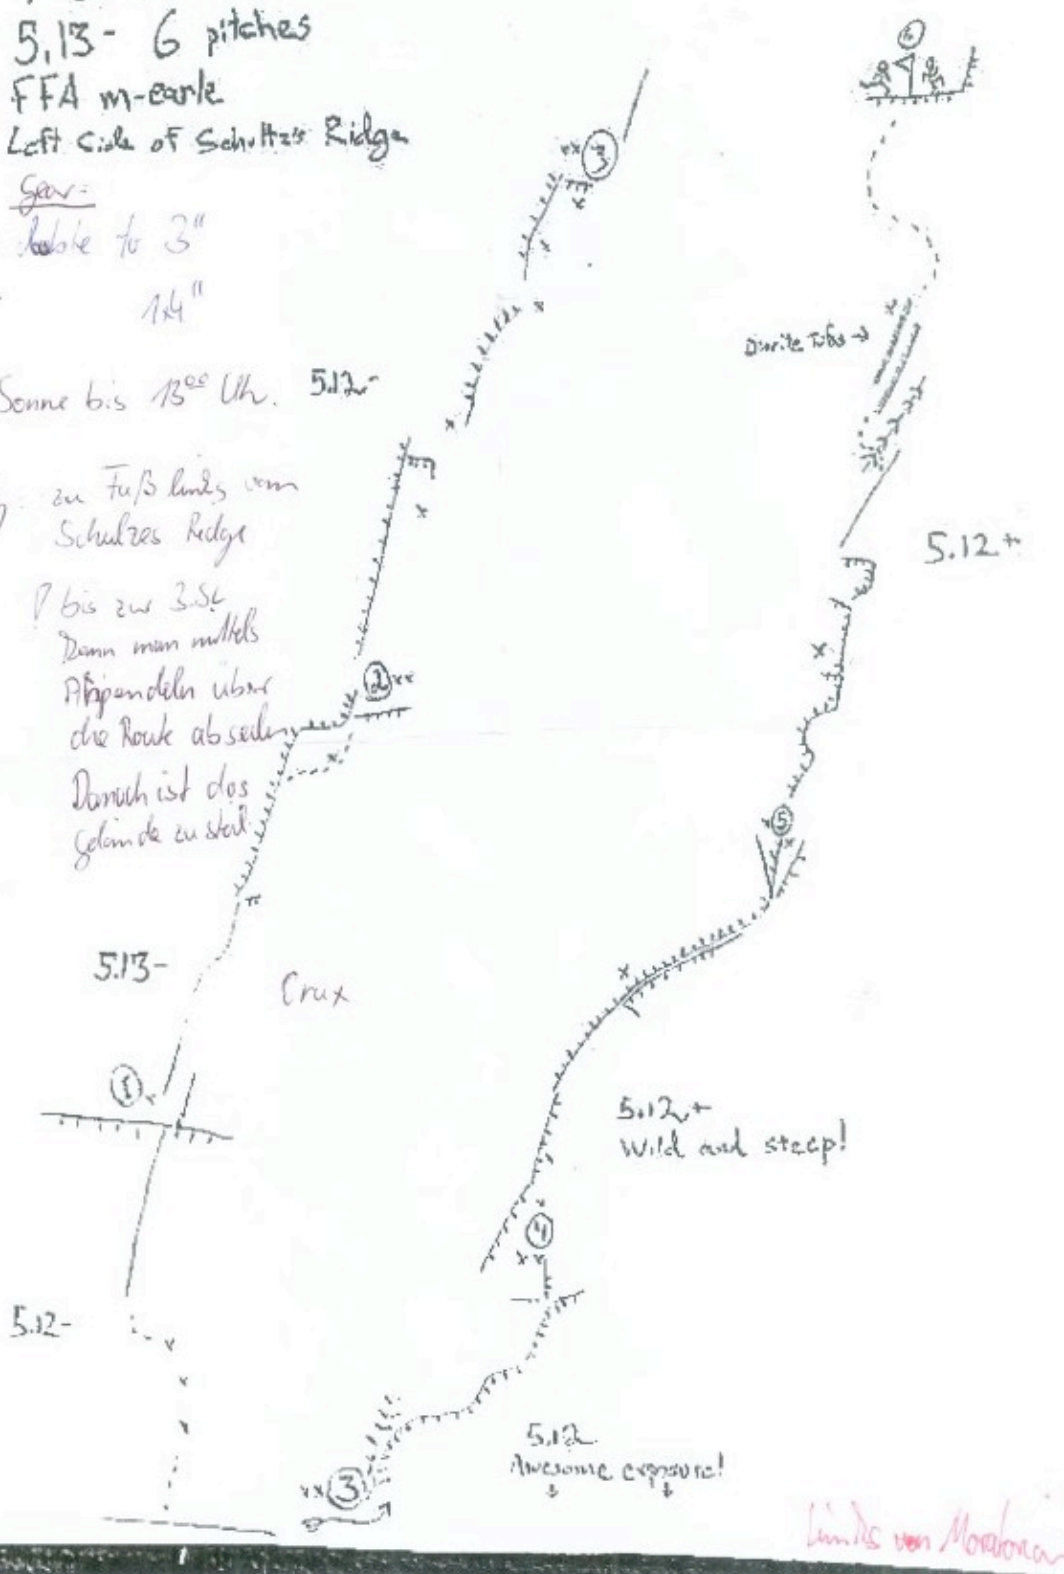 5.13- 6 pitches
FFA m-earle
Left Side of Schultz's Ridge
Gear:
to 3"
1x4"
Sonne bis 13⁰⁰ Uhr.
zu Fuß links vom
Schulzes Ridge
! bis zur 3.SL
Dann man mittels
Abpendeln über
die Route abseilen
Danach ist das
Gelände zu steil.
5.12-
3
2
5.13-
Crux
1
5.12-
6
5.12+
5
5.12+
Wild and steep!
4
5.12
Awesome exposure!
3
Links von